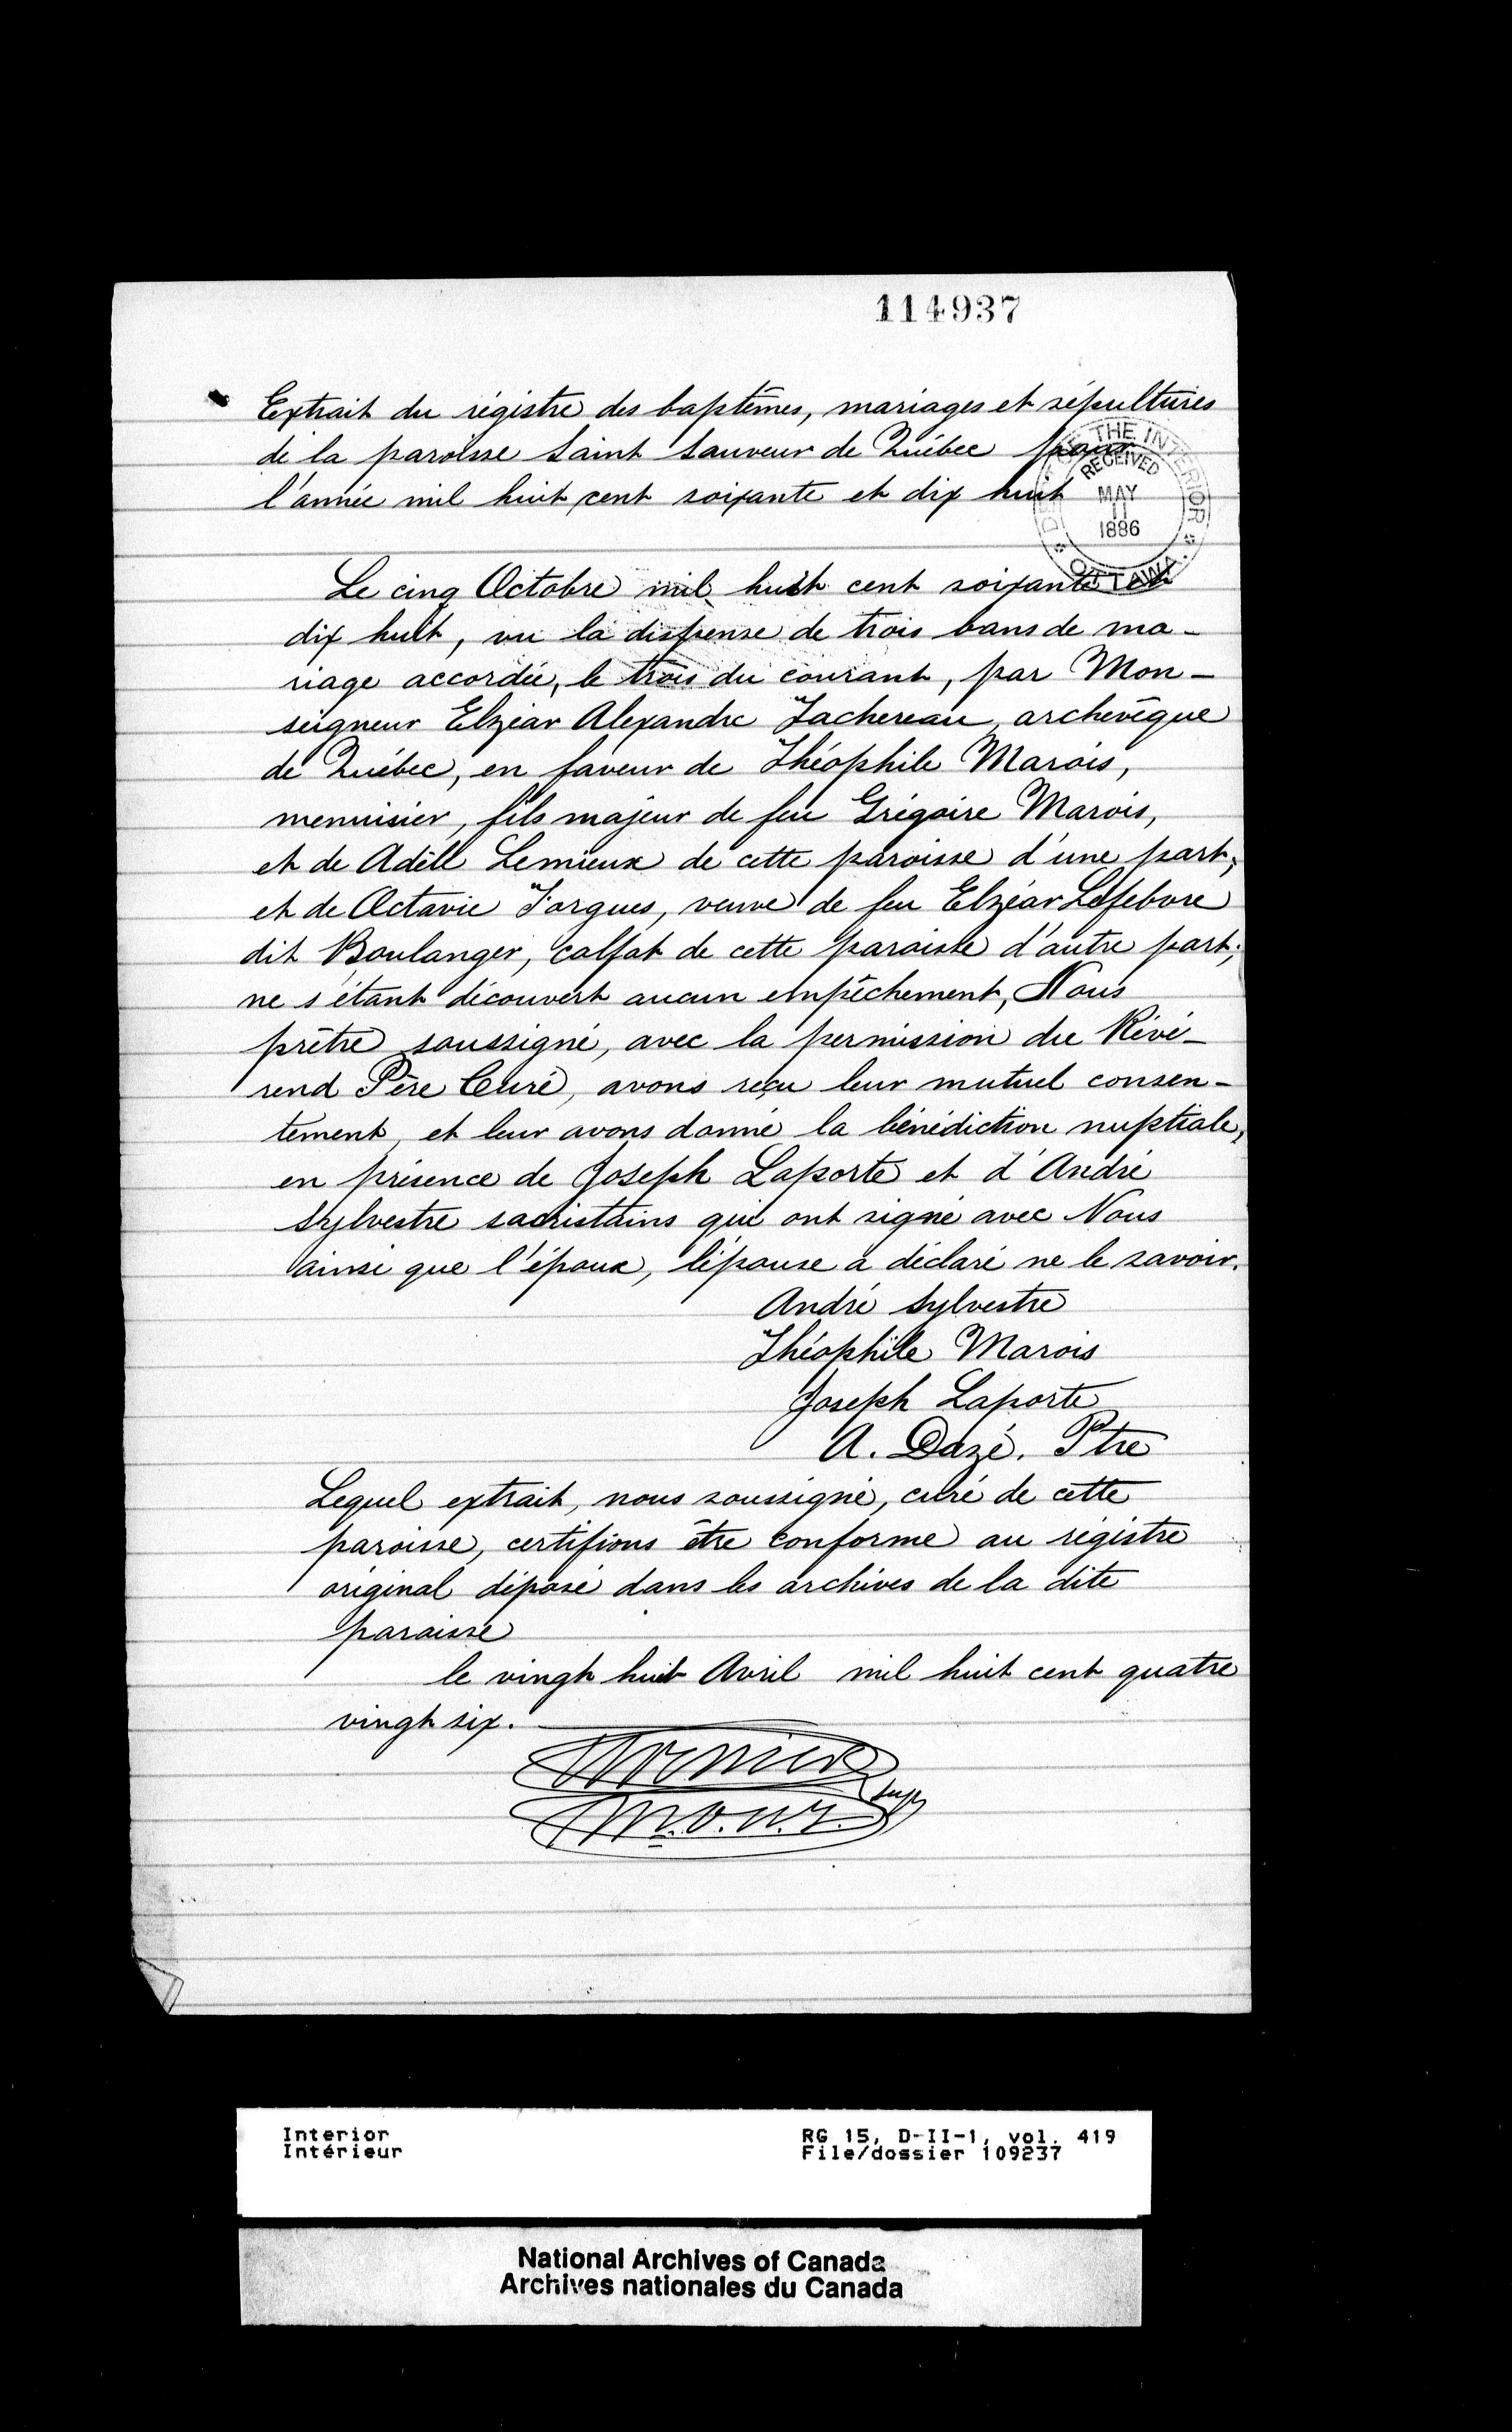 114937
Extrait du régistre des baptêmes, mariages et sépultures
de la paroisse Saint Sauveur de Québec pour
l'année mil huit cent soixante et dix huit
DEPT OF THE INTERIOR
RECEIVED
MAY
11
1886
OTTAWA.
Le cinq Octobre mil huit cent soixante et
dix huit, vu la dispense de trois bans de ma-
riage accordée, le trois du courant, par Mon-
seigneur Elzéar Alexandre Tachereau, archevêque
de Québec, en faveur de Théophile Marois,
menuisier, fils majeur de feu Grégoire Marois,
et de Adèle Lemieux de cette paroisse d'une part;
et de Octavie Fargues, veuve de feu Elzéar Lefebvre
dit Boulanger, calfat de cette paroisse d'autre part;
ne s'étant découvert aucun empêchement, Nous
prêtre soussigné, avec la permission du Révé-
rend Père Curé, avons reçu leur mutuel consen-
tement, et leur avons donné la bénédiction nuptiale,
en présence de Joseph Laporte et d'André
Sylvestre sacristains qui ont signé avec Nous
ainsi que l'époux, l'épouse a déclaré ne le savoir.
André Sylvestre
Théophile Marois
Joseph Laporte
A. Dazé. Ptre
Lequel extrait, nous soussigné, curé de cette
paroisse, certifions être conforme au régistre
original déposé dans les archives de la dite
paroisse
le vingt huit Avril mil huit cent quatre
vingt six.
Sup
Interior
Intérieur
RG 15, D-II-1, vol. 419
File/dossier 109237
National Archives of Canada
Archives nationales du Canada